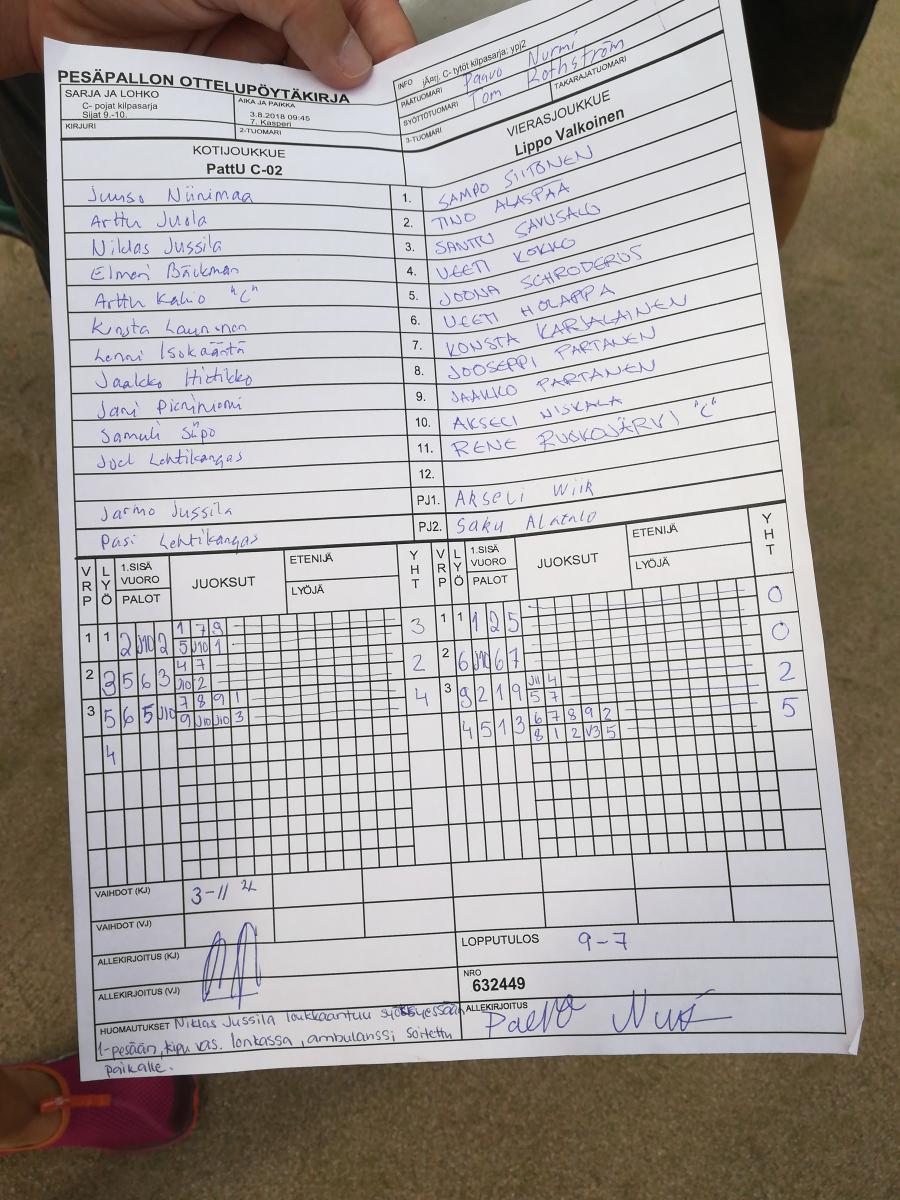 PESÄPALLON OTTELUPÖYTÄKIRJA
SARJA JA LOHKO
C- pojat kilpasarja
Sijat 9.-10.
AIKA JA PAIKKA
3.8.2018 09:45
7. Kasperi
KIRJURI
2-TUOMARI
INFO jÄrrj. C- tytöt kilpasarja: ypj2
PÄÄTUOMARI Paavo Nurmi
SYÖTTÖTUOMARI Tom Rothström
3-TUOMARI
TAKARAJATUOMARI
KOTIJOUKKUE
PattU C-02
VIERASJOUKKUE
Lippo Valkoinen
Juuso Niinimaa 1. SAMPO SIITONEN
Arttu Juola 2. TINO ALASPÄÄ
Niklas Jussila 3. SANTTU SAVUSALO
Elmeri Bäckman 4. VEETI KOKKO
Arttu Kalio "C" 5. JOONA SCHRODERUS
Konsta Lauronen 6. VEETI HOLAPPA
Lenni Isokääntä 7. KONSTA KARJALAINEN
Jaakko Hietikko 8. JOOSEPPI PARTANEN
Jani Pieniniemi 9. JAAKKO PARTANEN
Samuli Siipo 10. AKSELI NISKALA
Joel Lehtikangas 11. RENE RUOKOJÄRVI "C"
12.
Jarmo Jussila PJ1. Akseli Wiik
Pasi Lehtikangas PJ2. Saku Alatalo
VRP LYÖ 1.SISÄ VUORO PALOT JUOKSUT ETENIJÄ LYÖJÄ YHT VRP LYÖ 1.SISÄ VUORO PALOT JUOKSUT ETENIJÄ LYÖJÄ YHT
1 1 2 J10 2 1 7 9 3 1 1 1 2 5 0
5 J10 1
2 3 5 6 3 4 7 2 2 6 J10 6 7 0
J10 2
3 5 6 5 J10 7 8 9 1 4 3 9 2 1 9 J11 4 2
9 J10 J10 3 5 7
4 4 5 1 3 6 7 8 9 2 5
8 1 2 V3 5
VAIHDOT (KJ) 3-11 2L
VAIHDOT (VJ)
ALLEKIRJOITUS (KJ)
LOPPUTULOS 9-7
ALLEKIRJOITUS (VJ)
NRO
632449
HUOMAUTUKSET Niklas Jussila loukkaantuu syöksyessään
1-pesään, kipu vas. lonkassa, ambulanssi soitettu
paikalle.
ALLEKIRJOITUS
Paavo Nurmi